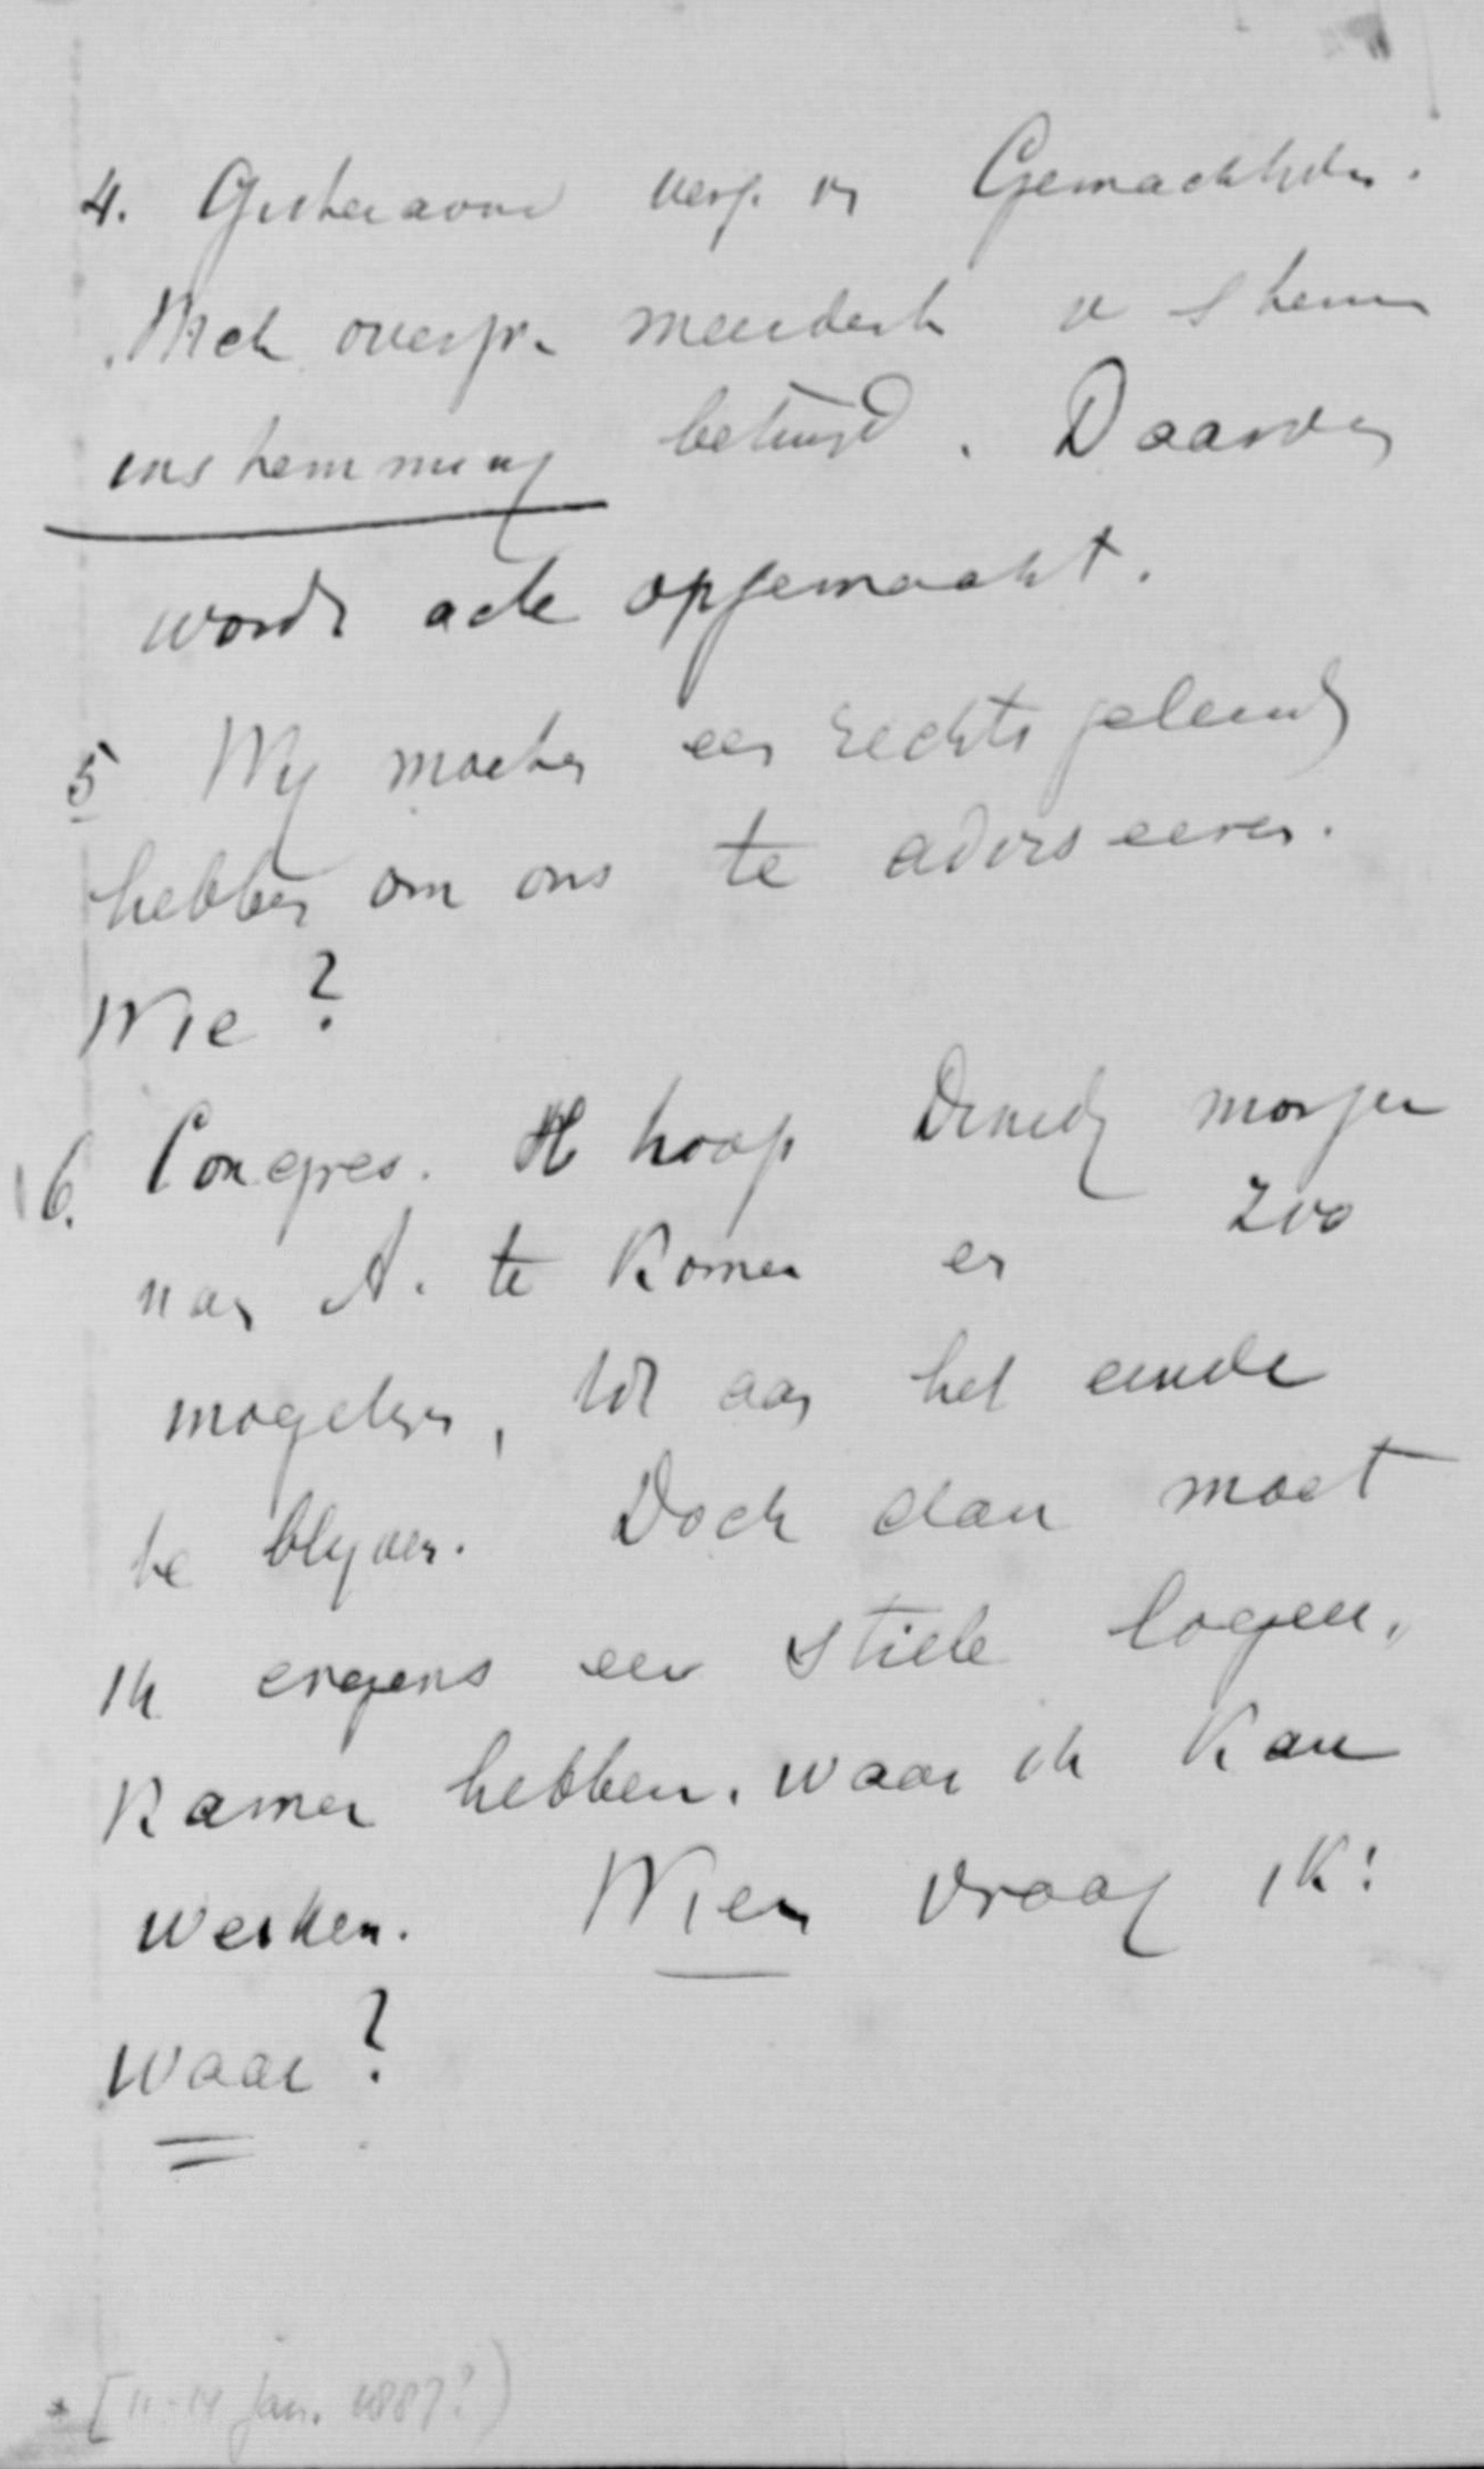 4. Gisteravond verg. v Gemachtigden.
Met overgr. meerderh v stemm
instemming betuigd. Daarvan
wordt acte opgemaakt.
5 Wij moeten een rechtsgeleerd
hebben om ons te adviseeren.
Wie?
6. Congres. Ik hoop Dinsdg morgen
naar A. te Komen en zoo
mogelijk, tot aan het einde
te blijven. Doch dan moet
ik ergens een stille logeer,
Kamer hebben. waar ik Kan
werken. Wien vraag ik!
waar?
* [11-14 Jan. 1887?)